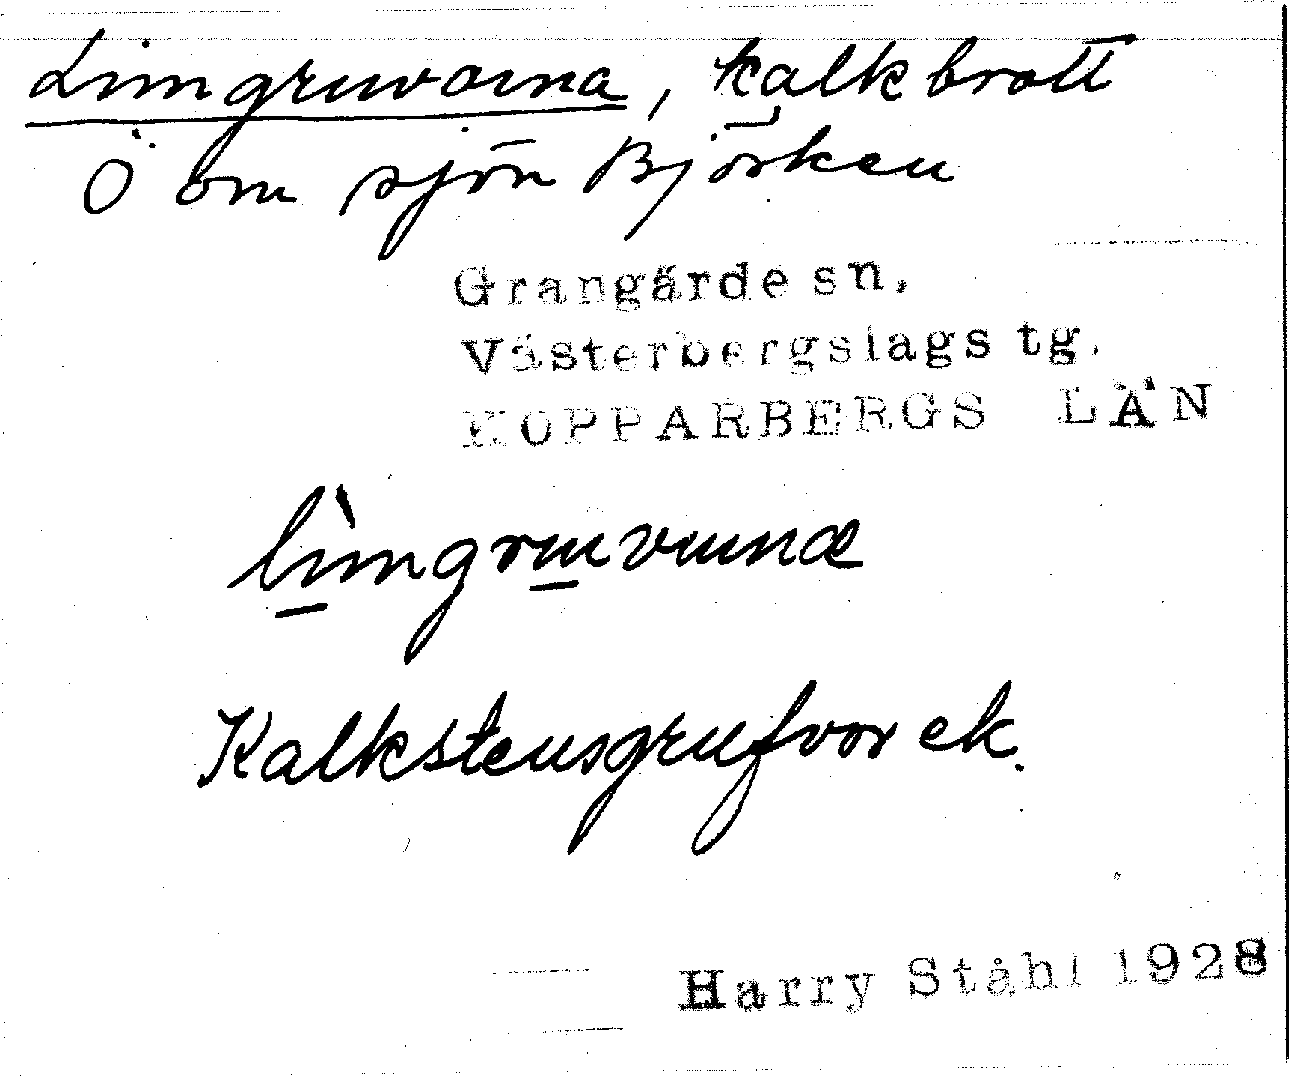 Limgruvorna, kalkbrott
Ö om sjön Björken
Grangärde sn,
Västerbergslags tg.
KOPPARBERGS LÄN
lìmgruvunæ
Kalkstensgrufvor ek.
Harry Ståhl 1928